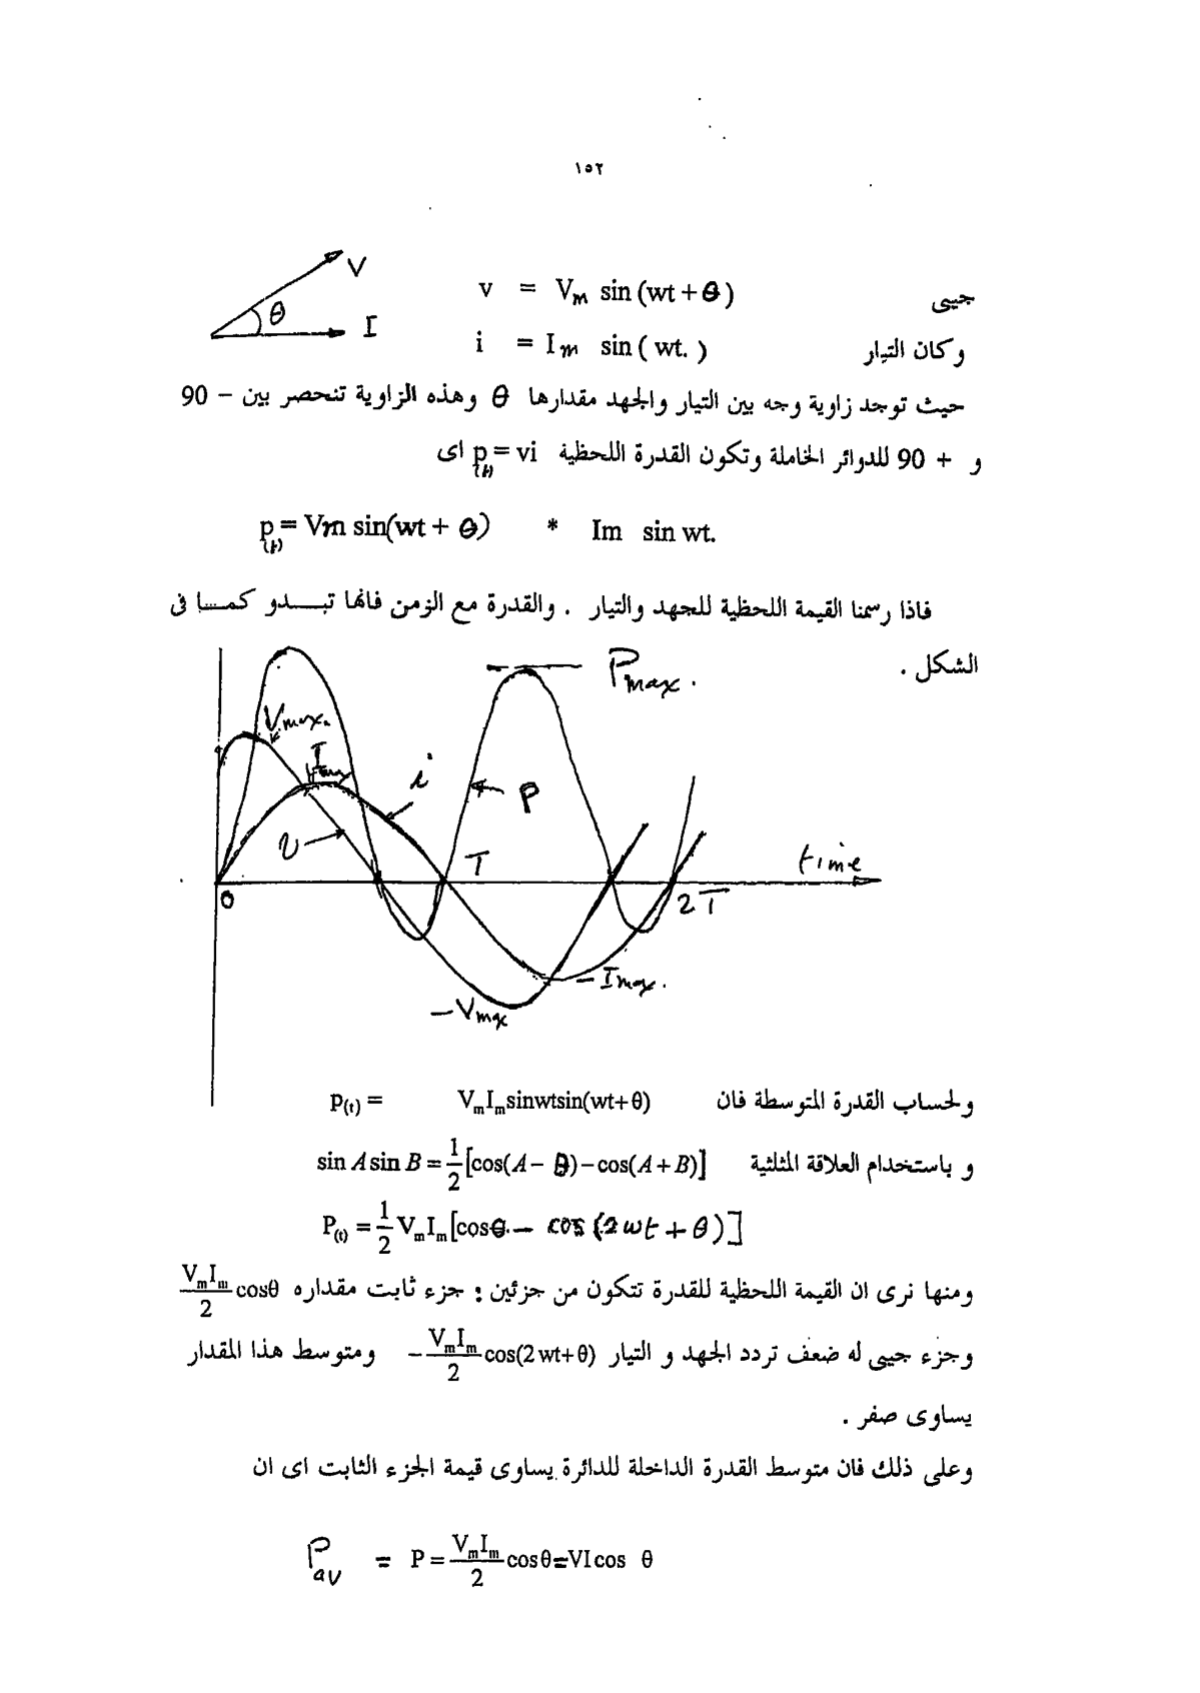 ١٥٢
V
θ
I
جيبى v = Vm sin (wt + θ)
وكان التيار i = Im sin ( wt. )
حيث توجد زاوية وجه بين التيار والجهد مقدارها θ وهذه الزاوية تنحصر بين – 90
و + 90 للدوائر الخاملة وتكون القدرة اللحظية p(t) = vi اى
p(t) = Vm sin(wt + θ) * Im sin wt.
فاذا رسمنا القيمة اللحظية للجهد والتيار . والقدرة مع الزمن فانها تبـــدو كمـــا فى
الشكل .
Pmax.
Vmax.
Im
i
P
v
T
time
0
2T
– Imax.
– Vmax
ولحساب القدرة المتوسطة فان P(t) = VmImsinwtsin(wt+θ)
و باستخدام العلاقة المثلثية sin A sin B = 1/2 [cos(A – B) – cos(A + B)]
P(t) = 1/2 VmIm[cosθ – cos (2wt + θ)]
ومنها نرى ان القيمة اللحظية للقدرة تتكون من جزئين : جزء ثابت مقداره VmIm/2 cosθ
وجزء جيبى له ضعف تردد الجهد و التيار – VmIm/2 cos(2wt+θ) ومتوسط هذا المقدار
يساوى صفر .
وعلى ذلك فان متوسط القدرة الداخلة للدائرة يساوى قيمة الجزء الثابت اى ان
Pav = P = VmIm/2 cosθ = VI cos θ